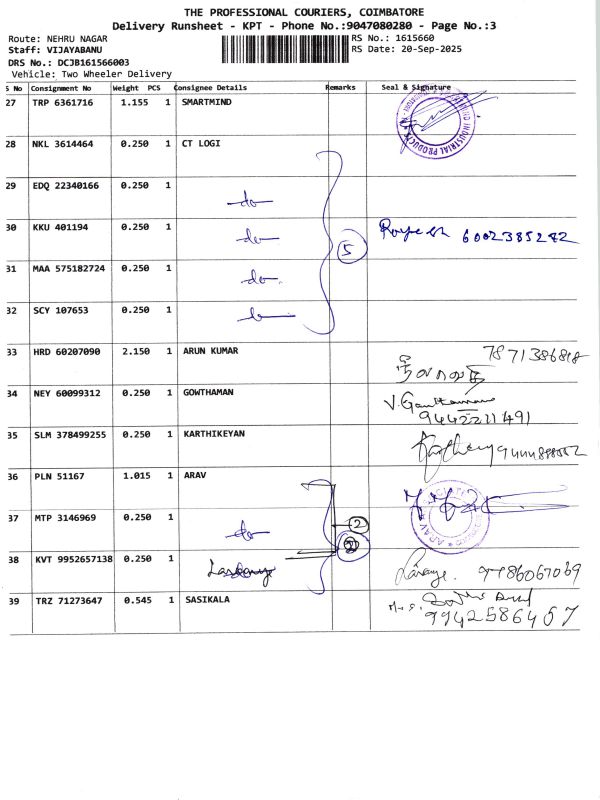 THE PROFESSIONAL COURIERS, COIMBATORE
Delivery Runsheet - KPT - Phone No.:9047080280 - Page No.:3
Route: NEHRU NAGAR
RS No.: 1615660
Staff: VIJAYABANU
RS Date: 20-Sep-2025
DRS No.: DCJB161566003
Vehicle: Two Wheeler Delivery
S No Consignment No Weight PCS Consignee Details Remarks Seal & Signature
27 TRP 6361716 1.155 1 SMARTMIND
28 NKL 3614464 0.250 1 CT LOGI
29 EDQ 22340166 0.250 1 do
30 KKU 401194 0.250 1 do 5 6002385242
31 MAA 575182724 0.250 1 do
32 SCY 107653 0.250 1
33 HRD 60207090 2.150 1 ARUN KUMAR 7871386818
34 NEY 60099312 0.250 1 GOWTHAMAN V. Gowthaman
9442221491
35 SLM 378499255 0.250 1 KARTHIKEYAN
36 PLN 51167 1.015 1 ARAV
37 MTP 3146969 0.250 1 do 2
38 KVT 9952657138 0.250 1
39 TRZ 71273647 0.545 1 SASIKALA
9942586457